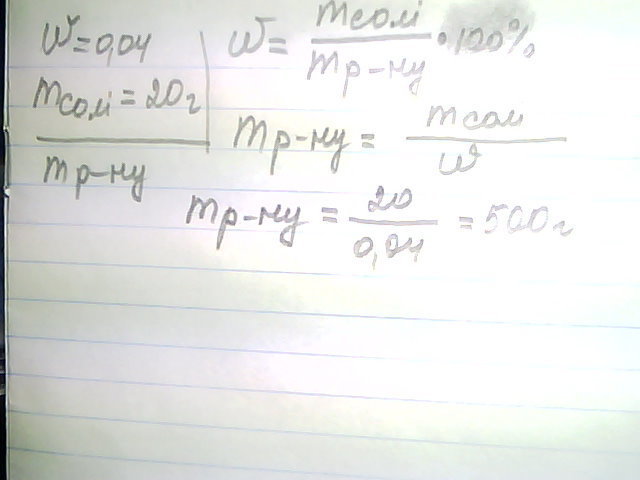 w=0,04
mсолі = 20г
mр-ну
w = mсолі / mр-ну · 100%
mр-ну = mсолі / w
mр-ну = 20 / 0,04 = 500г